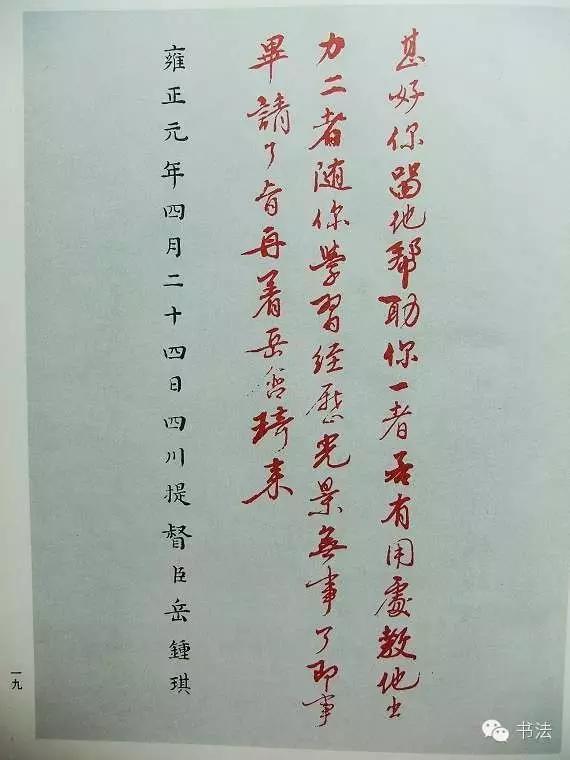 甚好你留他幫助你一者若有用處教他出
力二者随你學習經歷光景無事了即事
畢請了旨再着岳含琦来
雍正元年四月二十四日四川提督臣岳鍾琪
一九
书法